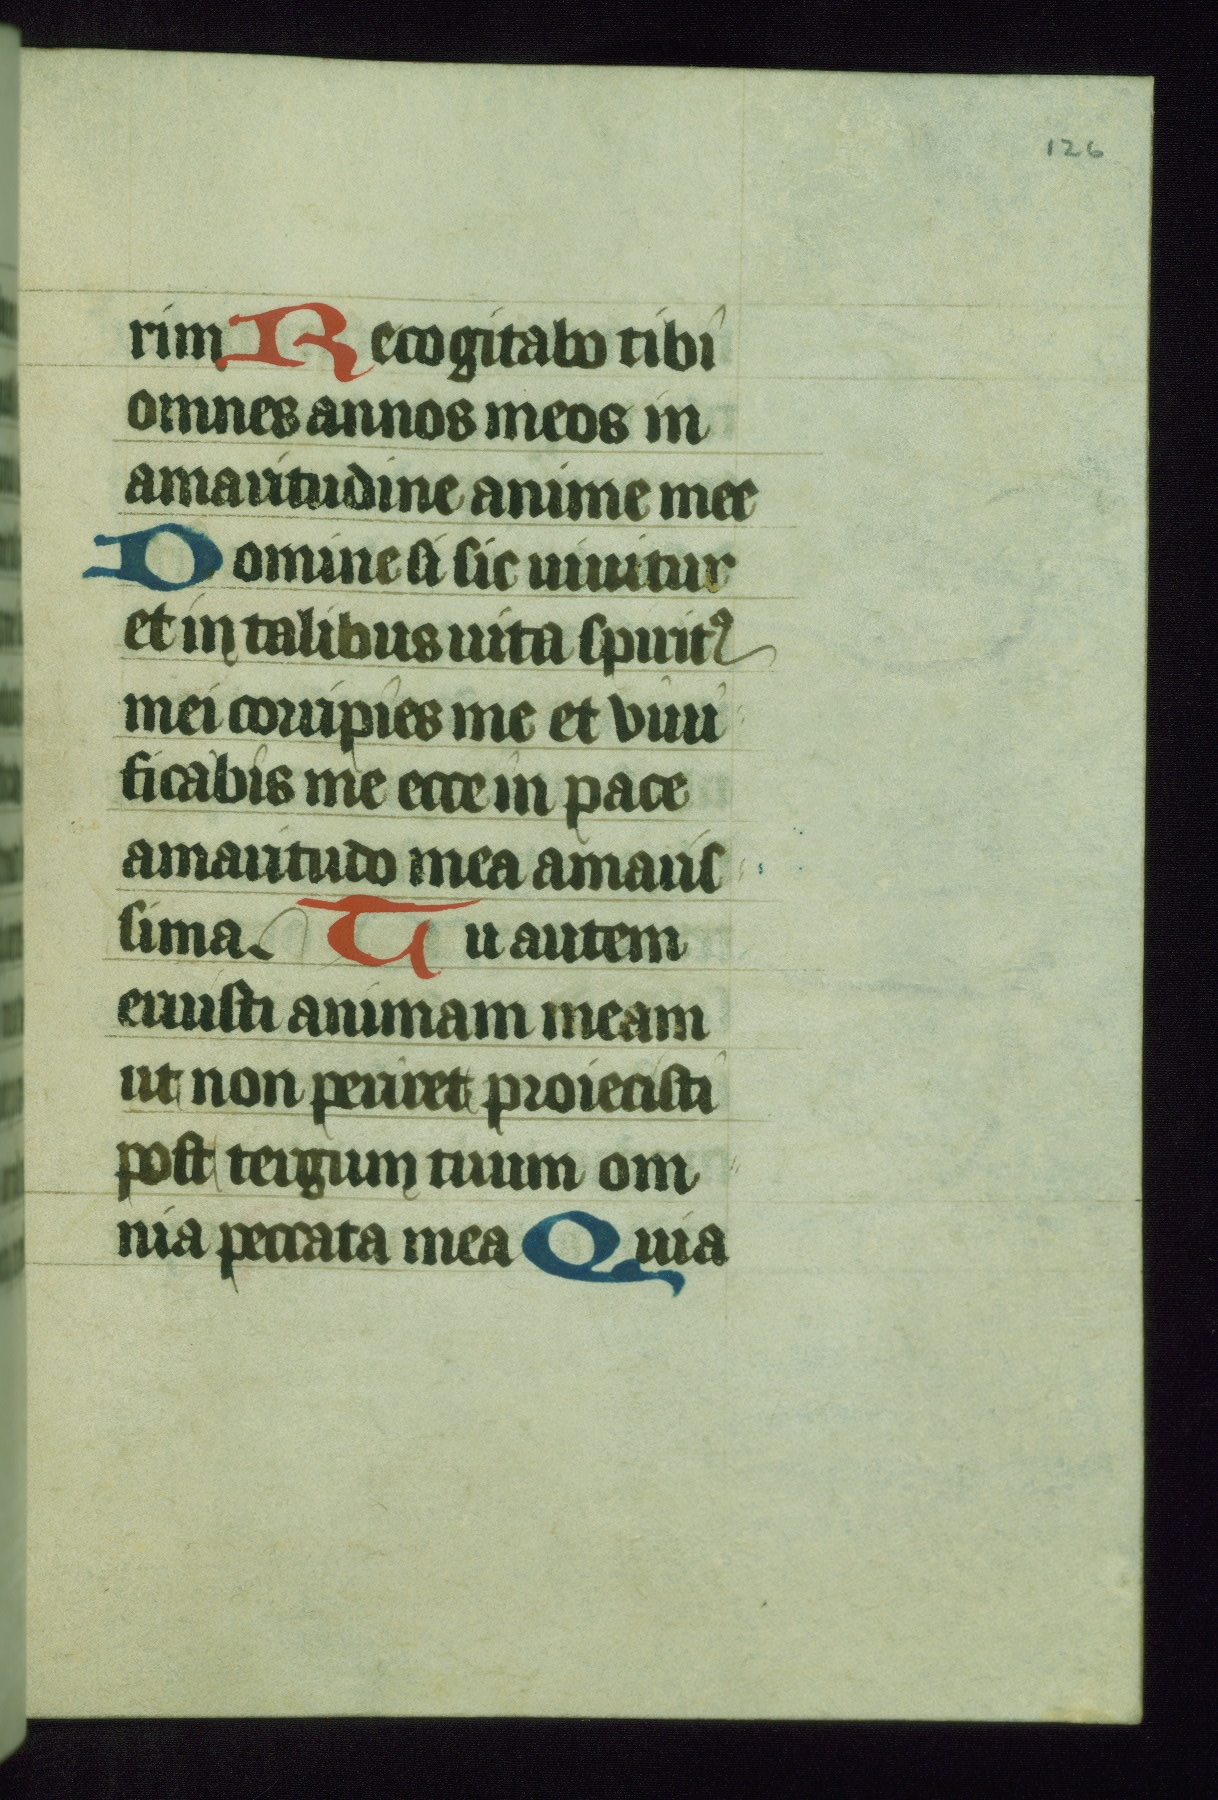 126
rim Recogitabo tibi
omnes annos meos in
amaritudine anime mee
Domine si sic uiuitur
et in talibus uita spiritꝰ
mei corripies me et viui
ficabis me ecce in pace
amaritudo mea amaris
sima. Tu autem
eruisti animam meam
ut non periret proiecisti
post tergum tuum om
nia peccata mea Quia